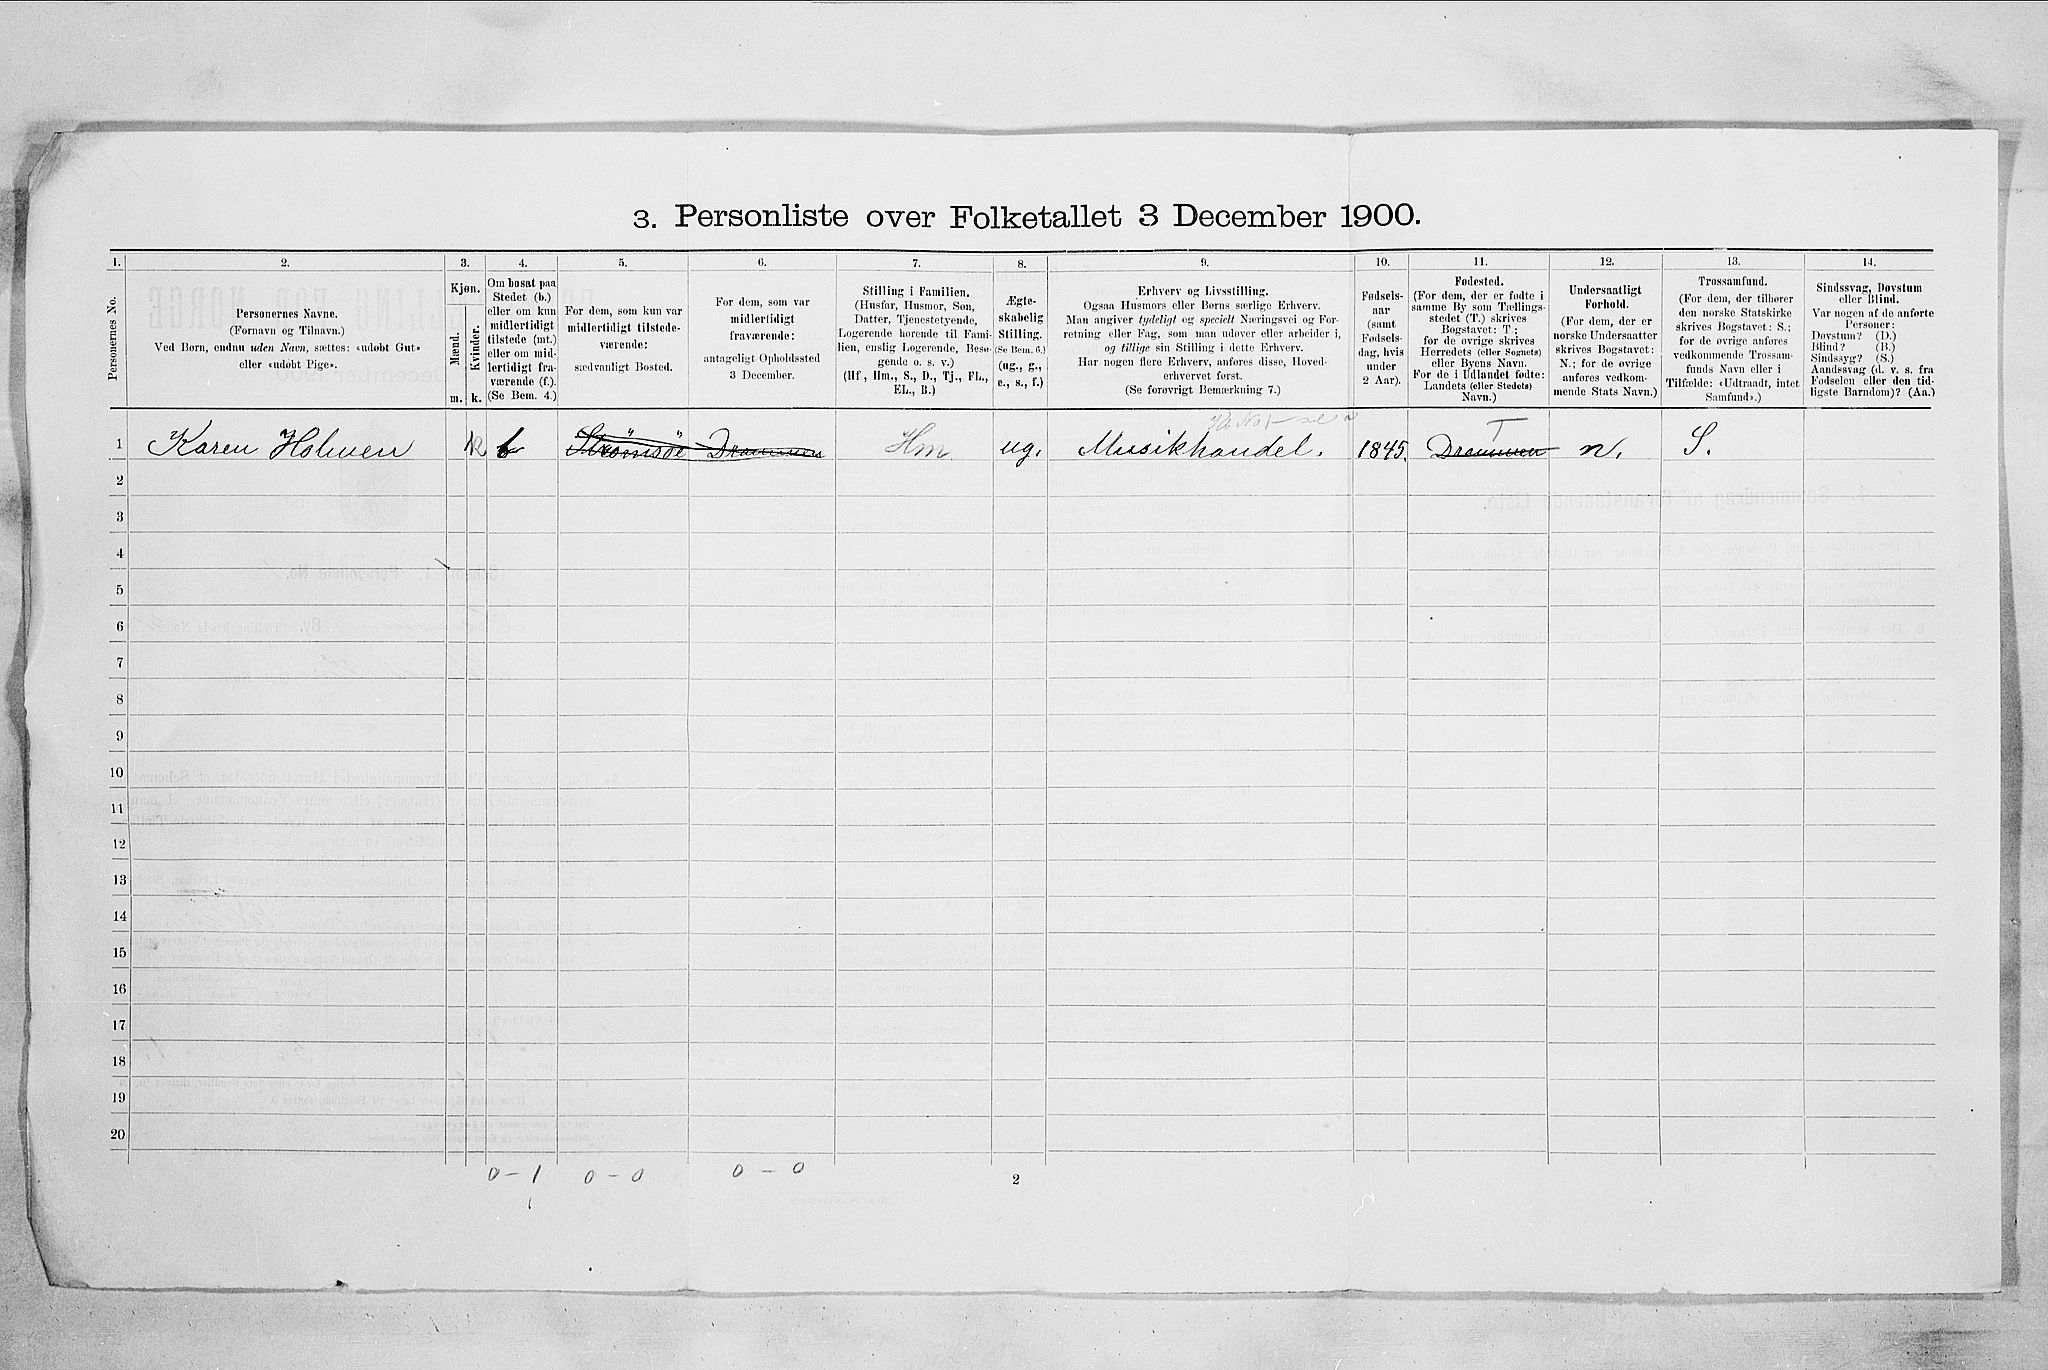 3. Personliste over Folketallet 3 December 1900.
1. 2. 3. 4. 5. 6. 7. 8. 9. 10. 11. 12. 13. 14.
Personernes No.
Personernes Navne.
(Fornavn og Tilnavn.)
Ved Børn, endnu uden Navn, sættes: «udøbt Gut»
eller «udøbt Pige».
Kjøn.
Mænd.
Kvinder.
m. k.
Om bosat paa
Stedet (b.)
eller om kun
midlertidigt
tilstede (mt.)
eller om mid-
lertidigt fra-
værende (f.).
(Se Bem. 4.)
For dem, som kun var
midlertidigt tilstede-
værende:
sædvanligt Bosted.
For dem, som var
midlertidigt
fraværende:
antageligt Opholdssted
3 December.
Stilling i Familien.
(Husfar, Husmor, Søn,
Datter, Tjenestetyende,
Logerende hørende til Fami-
lien, enslig Logerende, Besø-
gende o. s. v.)
(Hf., Hm., S., D., Tj., FL.,
EL., B.)
Ægte-
skabelig
Stilling.
(Se Bem. 6.)
(ug., g.,
e., s., f.)
Erhverv og Livsstilling.
Ogsaa Husmors eller Børns særlige Erhverv.
Man angiver tydeligt og specielt Næringsvei og For-
retning eller Fag, som man udøver eller arbeider i,
og tillige sin Stilling i dette Erhverv.
Har nogen flere Erhverv, anføres disse, Hoved-
erhvervet først.
(Se forøvrigt Bemærkning 7.)
Fødsels-
aar
(samt
Fødsels-
dag, hvis
under
2 Aar).
Fødested.
(For dem, der er fødte i
samme By som Tællings-
stedet (T.) skrives
Bogstavet: T;
for de øvrige skrives
Herredets (eller Sognets)
eller Byens Navn.
For de i Udlandet fødte:
Landets (eller Stedets)
Navn.)
Undersaatligt
Forhold.
(For dem, der er
norske Undersaatter
skrives Bogstavet:
N.; for de øvrige
anføres vedkom-
mende Stats Navn.)
Trossamfund.
(For dem, der tilhører
den norske Statskirke
skrives Bogstavet: S.;
for de øvrige anføres
vedkommende Trossam-
funds Navn eller i
Tilfælde: «Udtraadt, intet
Samfund».)
Sindssvag, Døvstum
eller Blind.
Var nogen af de anførte
Personer:
Døvstum? (D.)
Blind? (B.)
Sindssyg? (S.)
Aandssvag (d. v. s. fra
Fødselen eller den tid-
ligste Barndom)? (Aa.)
T
1 Karen Holmen k b Strömsöe Drammen Hm ug. Musikhandel. 1845. Drammen n. S.
2
3
4
5
6
7
8
9
10
11
12
13
14
15
16
17
18
19
20
0 - 1 0 - 0 0 - 0
2